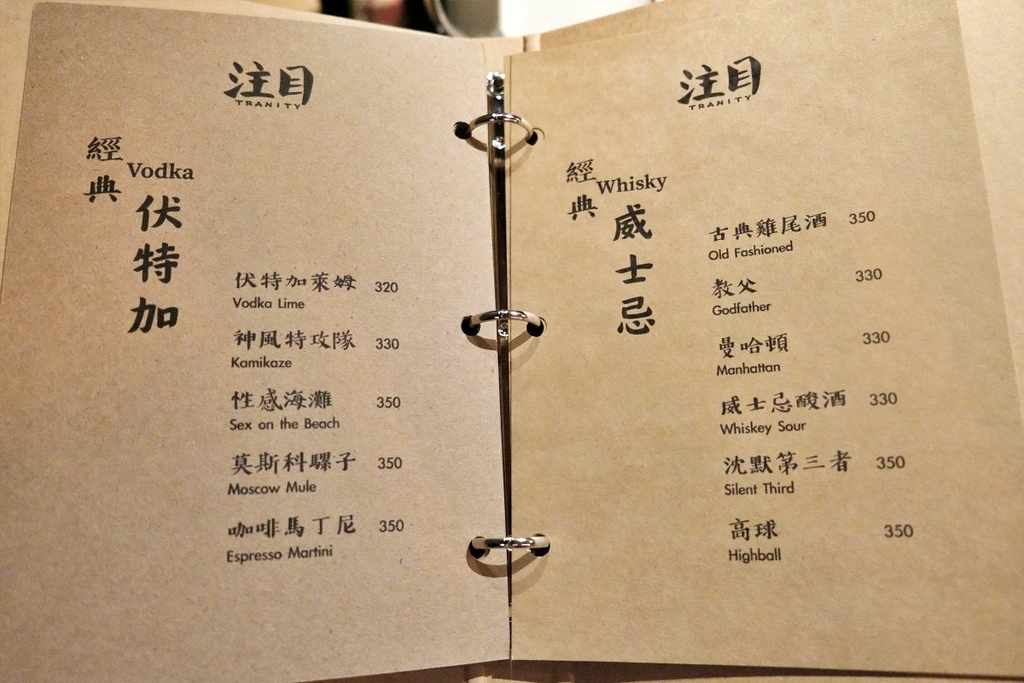 注目
TRANITY
經典
Vodka
伏特加
伏特加萊姆 320
Vodka Lime
神風特攻隊 330
Kamikaze
性感海灘 350
Sex on the Beach
莫斯科騾子 350
Moscow Mule
咖啡馬丁尼 350
Espresso Martini
注目
TRANITY
經典
Whisky
威士忌
古典雞尾酒 350
Old Fashioned
教父 330
Godfather
曼哈頓 330
Manhattan
威士忌酸酒 330
Whiskey Sour
沈默第三者 350
Silent Third
高球 350
Highball